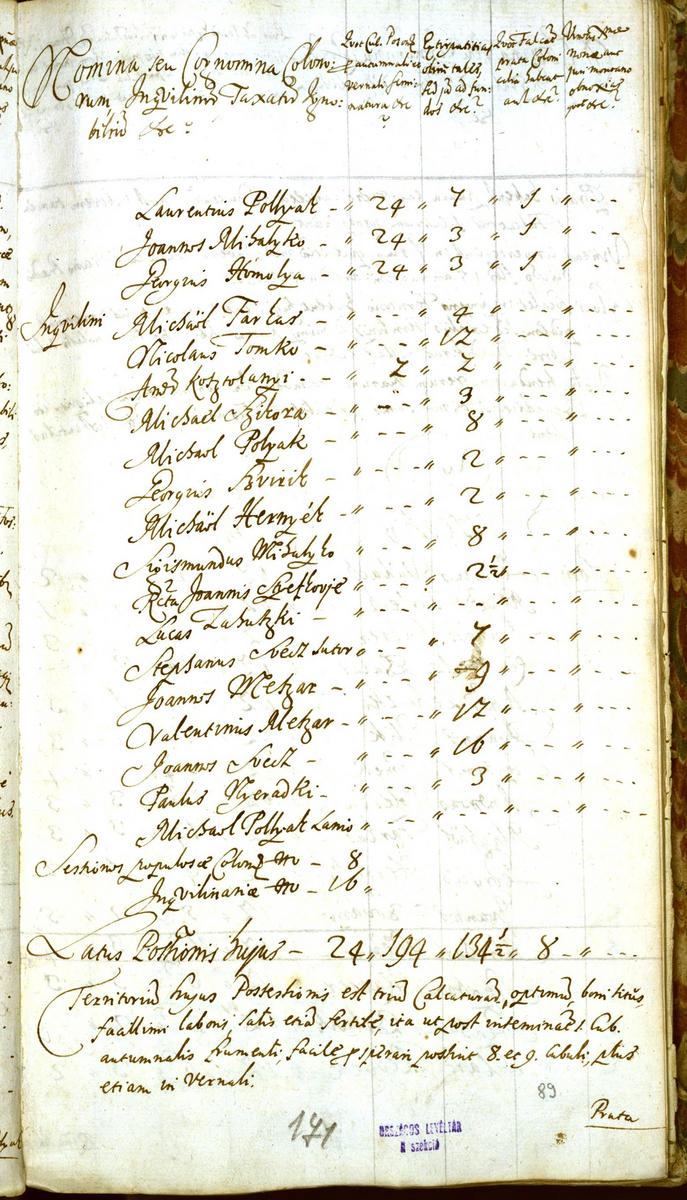 Nomina seu Cognomina Colono-
rum Inqvilinorū Taxatorū Igno-
biliū &c?
Quot Cub. Poson.
autumnalis et
vernalis semi-
natura &c
?
Extirpatitias
obtin tales,
sed jā ad fun-
dos &c?
Quot Falcas
prata Coloni-
calia habeat
aut &c?
Vineas
nonæ aut
juri montano
obnoxias
&c?
Laurentius Pollyak - " 24 " 7 " 1 " - -
Joannes Mihalyko - " 24 " 3 " 1 " - -
Georgius Homolya - " 24 " 3 " 1 " - -
Inqvilini Michaël Farkas - " - - " 4 " - - " - -
Nicolaus Tomko - " - - " 12 " - - " - -
Andr Kosztolanyi - " 2 " 2 " - - " - -
Michaël Szikora - " - - " 3 " - - " - -
Michael Polyak " - - " 8 " - - " - -
Georgius Szvirik " - - " 2 " - - " - -
Michaël Hernyék - " - - " 2 " - - " - -
Sigismundus Mihalyko " - - " 8 " - - " - -
Rcta Joannis " - - " 2½ " - - " - -
Lucas Zahutzki - " - - " - - " - - " - -
Stephanus Svecz Sutor " - - " 7 " - - " - -
Joannes Metzar - " - - " 9 " - - " - -
Valentinus Metzar - " - - " 12 " - - " - -
Joannes Svecz - " - - " 16 " - - " - -
Paulus Nyeradki - " - - " 3 " - - " - -
Michael Pollyak Lanio " - - " - - " - - " - -
Sessiones populosæ Colon No - 8
Inqvilinariæ No - 16 "
Latus Possionis hujus - 24 " 194 " 134½ " 8 - " - -
Territoriū hujus Possessionis est triū Calcaturarū, optimæ, bonitatis,
facillimi laboris, satis etiā fertile, ita ut post inseminat 1. Cub.
autumnalis frumenti, facile sperari possint 8. et 9. Cubuli, plus
etiam in vernali.
89
Prata
171
ORSZÁGOS LEVÉLTÁR
N szekció